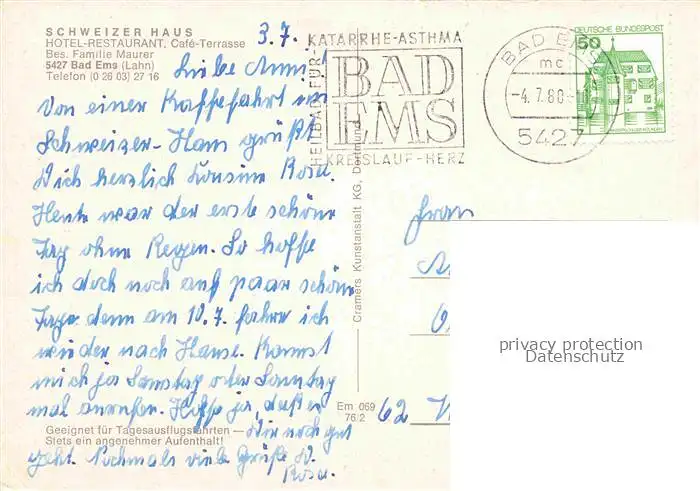 SCHWEIZER HAUS
HOTEL-RESTAURANT, Café-Terrasse
Bes. Familie Maurer
5427 Bad Ems (Lahn)
Telefon (0 26 03) 27 16
3.7.
Liebe Anni!
Von einer Kaffefahrt im
Schweizer-Haus grüßt
Dich herzlich Kousine Rosa.
Heute war der erste schöne
Tag ohne Regen. So hoffe
ich doch noch auf paar schöne
Tage denn am 10.7. fahre ich
wieder nach Hause. Kannst
mich ja Samstag oder Sonntag
mal anrufen. Hoffe ja, daß es
Dir noch gut
geht. Nochmals viele Grüße D.
Rosa.
Geeignet für Tagesausflugsfahrten —
Stets ein angenehmer Aufenthalt!
KATARRHE-ASTHMA
HEILBAD FÜR
BAD
EMS
KREISLAUF-HERZ
BAD EMS
mc
-4.7.80-
5427
DEUTSCHE BUNDESPOST
50
Cramers Kunstanstalt KG, Dortmund
Em 069
76/2
Frau
62
privacy protection
Datenschutz